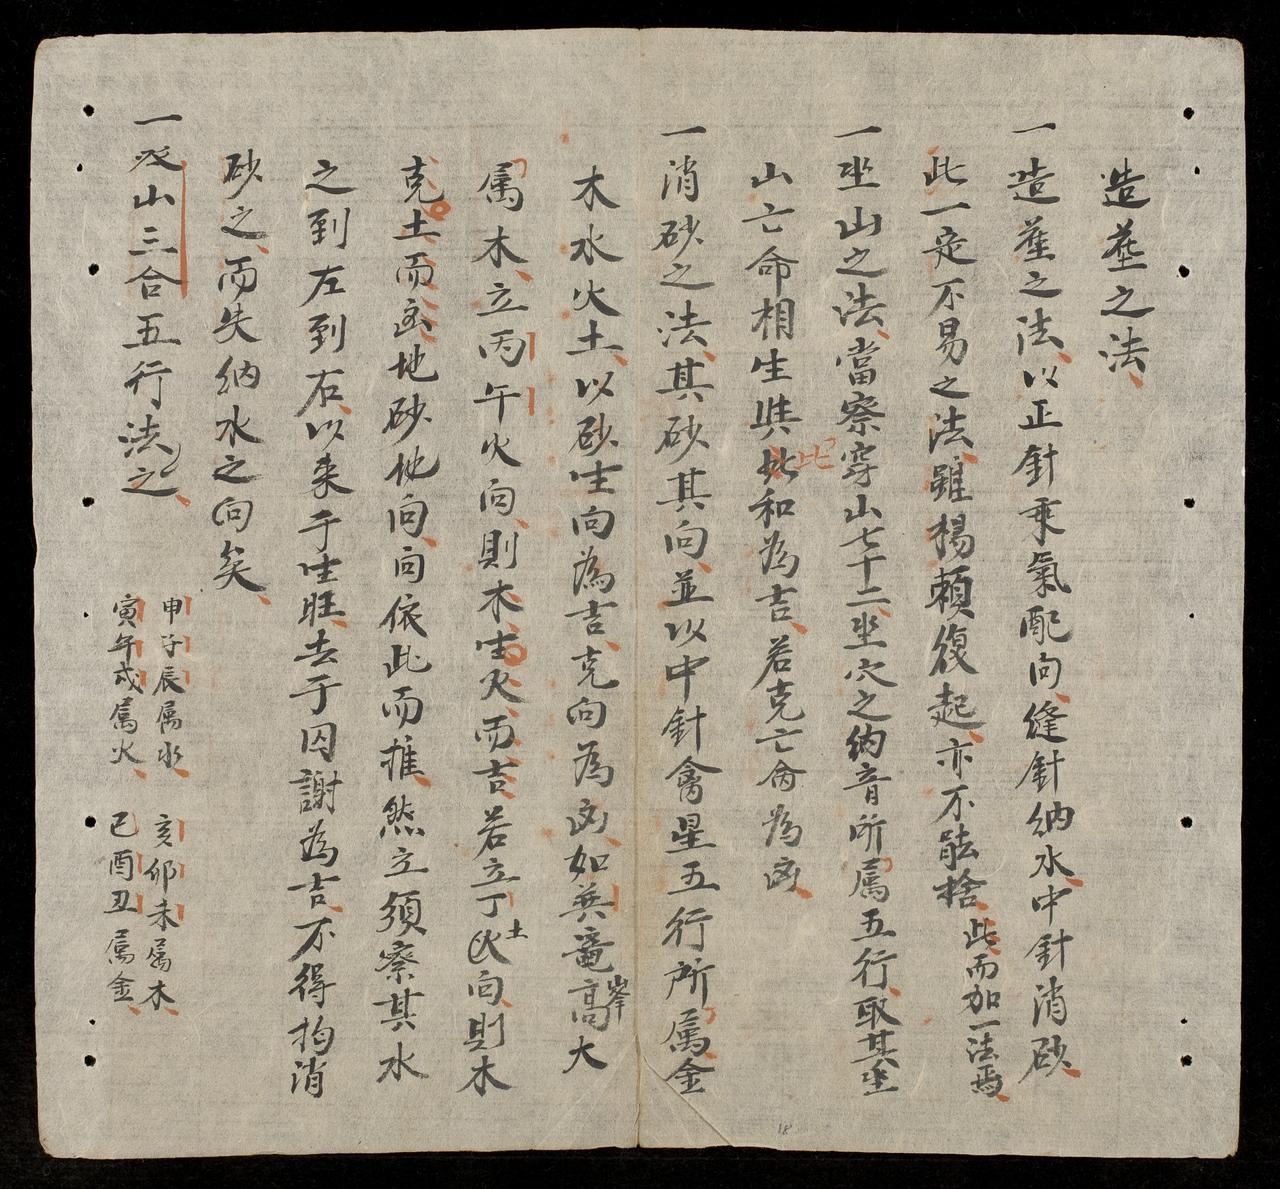 造塟之法
一造塟之法以正針乘氣配向縫針納水中針消砂
此一定不易之法雖楊賴復起亦不能捨此而加一法焉
一坐山之法當察穿山七十二坐穴之納音所属五行取其坐
山亡命相生與比和為吉若克亡命為凶
此
一消砂之法其砂其向並以中針禽星五行所属金
木水火土以砂生向為吉克向為凶如巽竜高大
峯
属木立丙午火向則木生火而吉若立丁火向則木
土
克土而凶地砂地向向依此而推然立須察其水
之到左到右以来于生旺去于囚謝為吉不得拘消
砂之而失納水之向矣
一 山三合五行法之
申子辰属水
寅午戌属火
亥卯未属木
巳酉丑属金
18